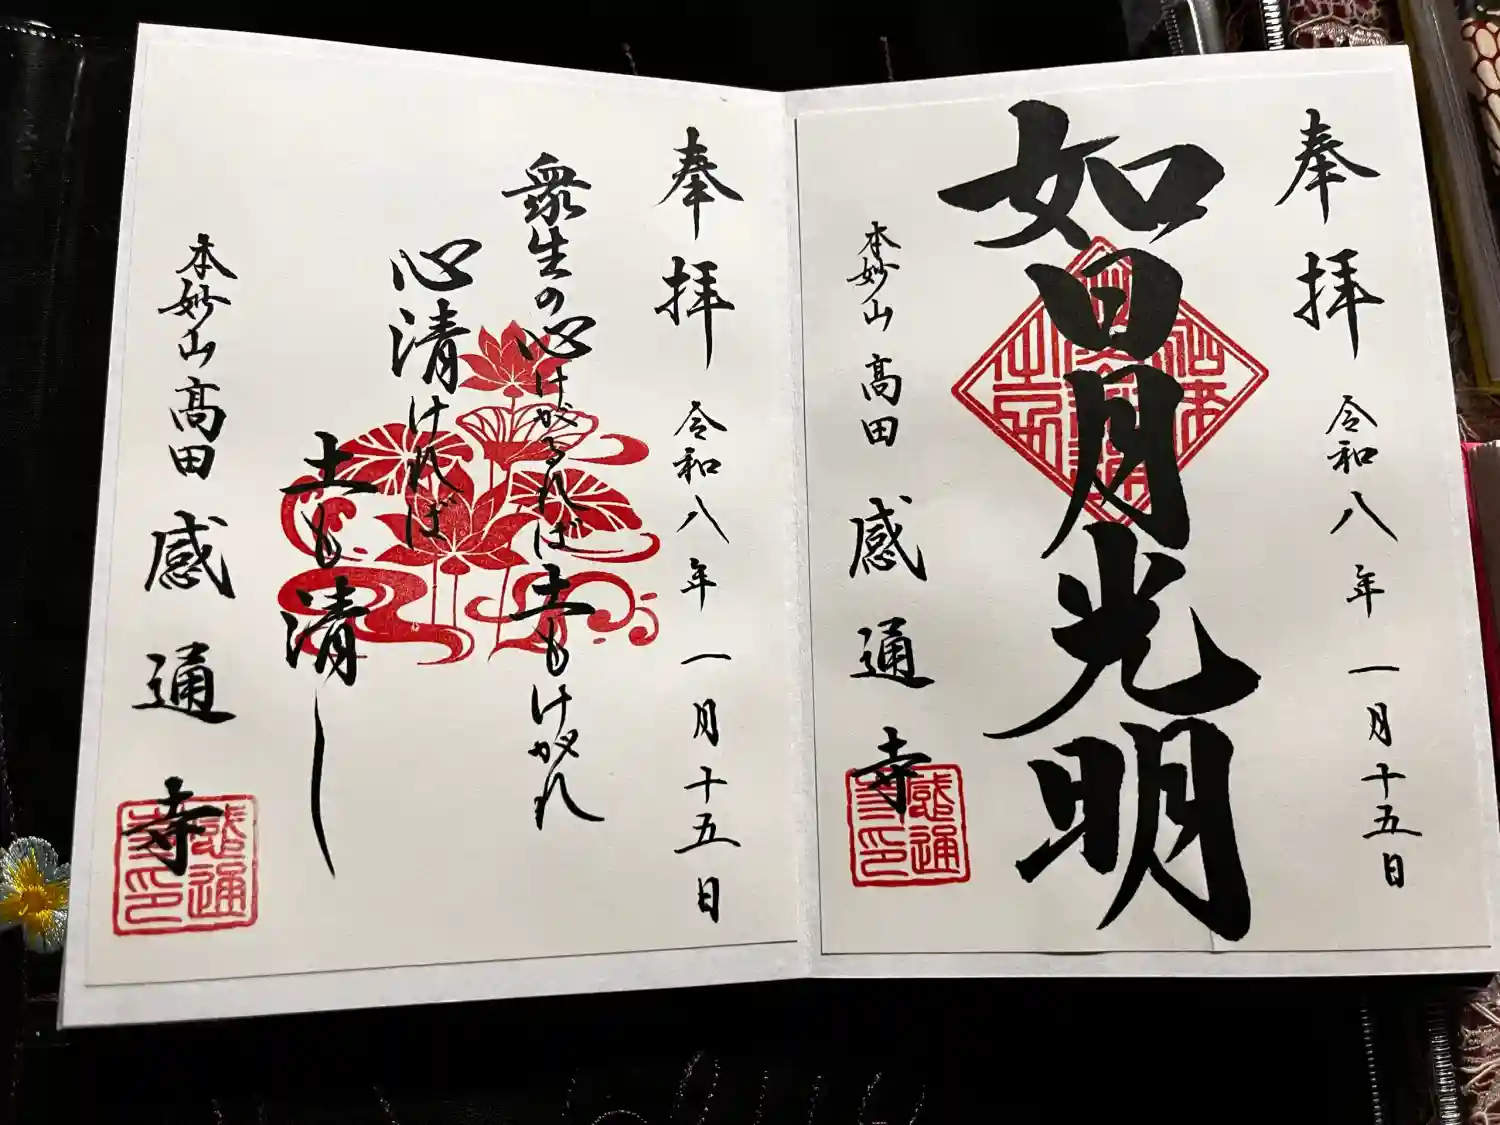 奉拝 令和八年 一月十五日
如日月光明
本妙山 高田 感通寺
感通寺印
奉拝 令和八年 一月十五日
衆生の心けがるれば土もけがれ
心清ければ
土も清し
本妙山 高田 感通寺
感通寺印